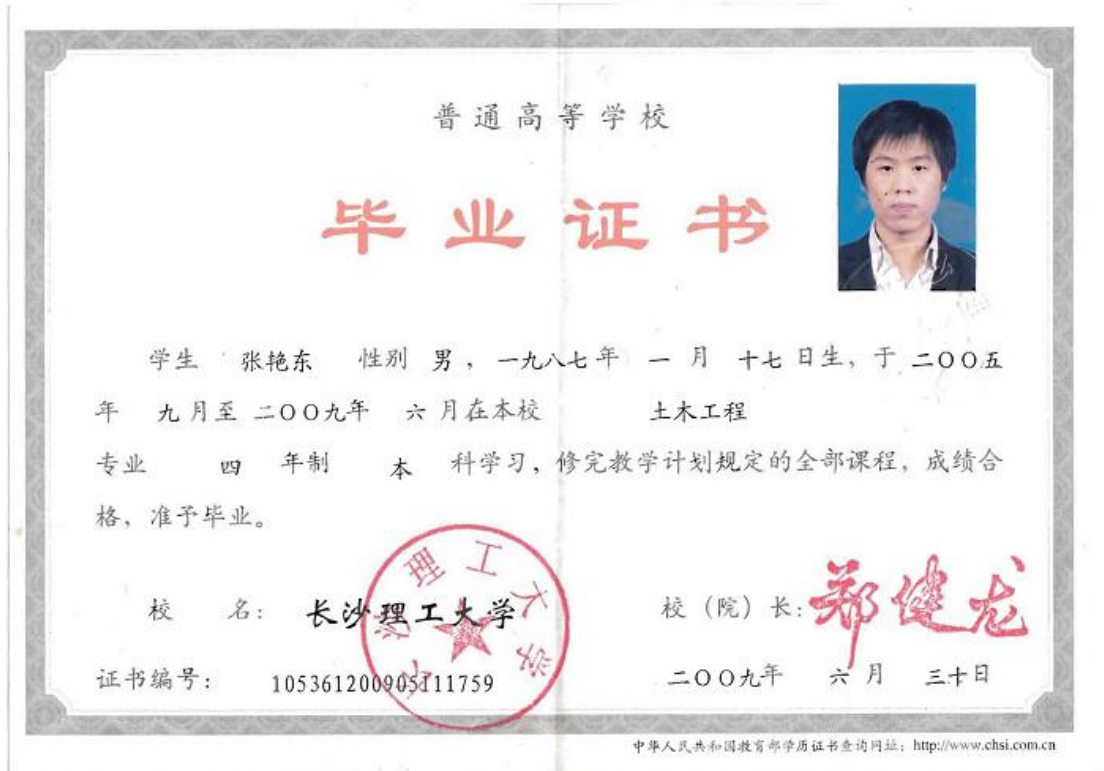 普通高等学校
毕业证书
学生 张艳东 性别 男，一九八七年 一 月 十七 日生，于 二〇〇五
年 九 月至 二〇〇九年 六 月在本校 土木工程
专业 四 年制 本 科学习，修完教学计划规定的全部课程，成绩合
格，准予毕业。
校 名： 长沙理工大学
长沙理工大学
校（院）长：郑健龙
证书编号： 105361200905111759
二〇〇九年 六 月 三十日
中华人民共和国教育部学历证书查询网址：http://www.chsi.com.cn